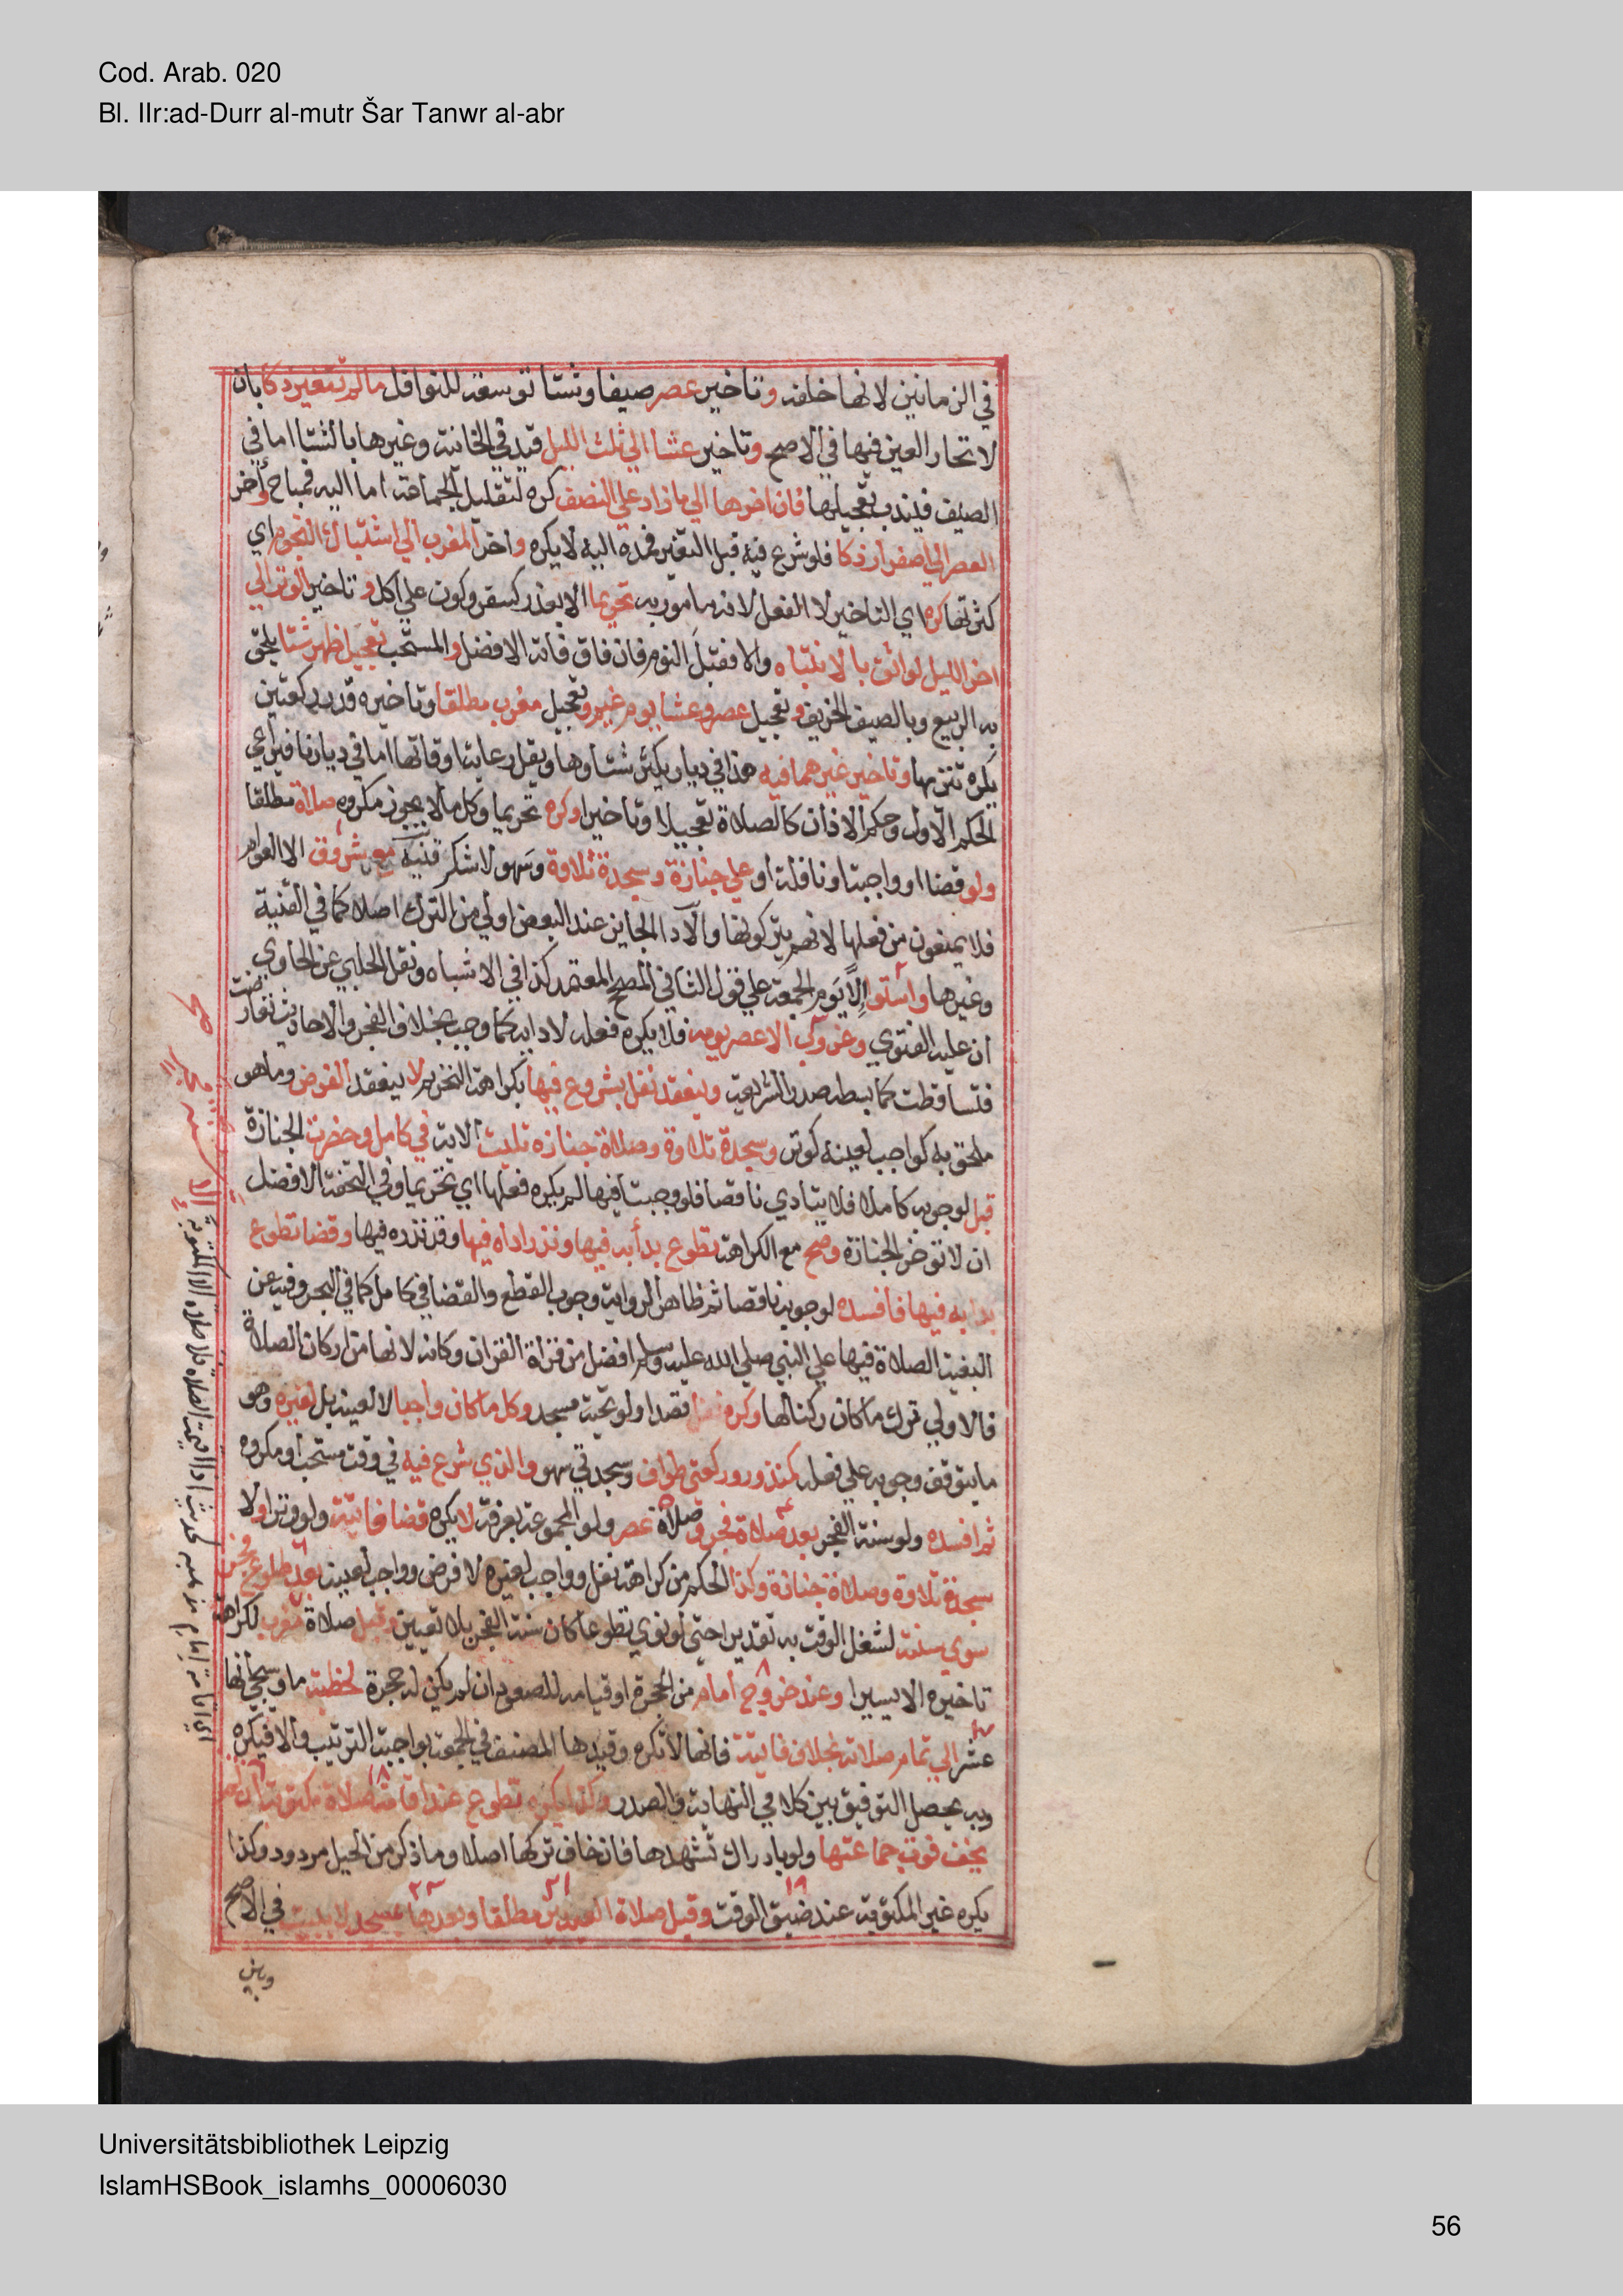 Cod. Arab. 020
Bl. IIr:ad-Durr al-mutr Šar Tanwr al-abr
في الزمانين لانها خلفه وتاخير عصر صيفا وشتا توسعة للنوافل مالم تتغير ذكا بان
لاتحار العين فيها في الاصح وتاخير عشا الي ثلث الليل قيد في الخانية وغيرها بالشتا اما في
الصيف فيندب تعجيلها فان اخرها الي ما زاد علي النصف كره لتقليل الجماعة اما اليه فمباح وأخر
العصر الي اصفرار ذكا فلو شرع فيه قبل التغير فمده اليه لا يكره واخر المغرب الي اشتباك النجوم اي
كثرتها كره اي التاخير لا الفعل لانه مامور به تحريما الا بعذر كسفر وكون علي اكل وتاخير الوتر الي
اخر الليل لواثق بالانتباه والا فقبل النوم فان فاق فاته الافضل والمستحب تعجيل ظهر شتا يلحق
به الربيع وبالصيف الخريف وتعجيل عصر وعشا يوم غيم وتعجيل مغرب مطلقا وتاخيره قدر ركعتين
يكره تنزيها وتاخير غيرهما فيه هذا في ديار يكثر شتاوها ويقل رعاية اوقاتها اما في ديارنا فيراعي
الحكم الاول وحكم الاذان كالصلاة تعجيلا وتاخيرا وكره تحريما وكل مالا يجوز مكروه صلاة مطلقا
ولو قضا او واجبة او نافلة او علي جنازة وسجدة تلاوة وسهو لا شكر قنية مع شروق الا العوام
فلا يمنعون من فعلها لانهم يتركونها والاداا لجايز عند البعض اولي من الترك اصلا كما في القنية
وغيرها واستوا إلا يوم الجمعة علي قول الثاني المصحح المعتمد كذا في الاشباه ونقل الحلبي عن الحاوي
ان عليه الفتوي وغروب الا عصر يومه فلا يكره فعله لادايه كما وجب بخلاف الفجر والاحاديث تعارضت
فتساقطت كما بسطه صدر الشريعة وينعقد نفل بشروع فيها بكراهة التحريم لا ينعقد الفرض وما هو
ملحق به كواجب لعينه كوتر وسجدة تلاوة وصلاة جنازه تليت الاية في كامل وحضرت الجنازة
قبل لوجوبه كاملا فلا يتادي ناقصا فلو وجبتا فيها لم يكره فعلها اي تحريما وفي التحفة الافضل
ان لا تؤخر الجنازة وصح مع الكراهة تطوع بدأ به فيها ونذر اداه فيها وقد نذره فيها وقضا تطوع
بدا به فيها فافسده لوجوبه ناقصا ثم ظاهر الرواية وجوب القطع والقضا في كامل كما في البحر وفيه عن
البغية الصلاة فيها علي النبي صلي الله عليه وسلم افضل من قراة القران وكانه لانها من اركان الصلاة
فالاولي ترك ما كان ركنا لها وكره نفل قصدا ولو تحية مسجد وكل ما كان واجبا لا لعينه بل لغيره وهو
مايتوقف وجوبه علي فعله كنذور وركعتي طواف وسجدتي سهو والذي شرع فيه في وقت مستحب او مكروه
ثم افسده ولو سنة الفجر بعد صلاة فجر وصلاة عصر ولو المجموعة بعرفة لا يكره قضا فايتة ولو وترا ولا
سجدة تلاوة وصلاة جنازة وكذا الحكم من كراهة نفل وواجب لغيره لا فرض وواجب لعينه بعد طلوع فجر
سوي سنته لشغل الوقت به تقديرا حتي لو نوي تطوعا كان سنة الفجر بلا تعيين وقبل صلاة مغرب لكراهة
تاخيره الا يسيرا وعند خروج امام من الحجرة او قيامه للصعود ان لم يكن له حجرة لخطبة ما وسيجئ انها
عشر الي تمام صلاته بخلاف فايتة فانها لا تكره وقيدها المصنف في الجمعة بواجبة الترتيب والا فيكره
وبه يحصل التوفيق بين كلامي النهاية والصدر وكذا يكره تطوع عند اقامة صلاة مكتوبة ان لم
يخف فوت جماعتها ولو بادراك تشهدها فان خاف تركها اصلا وما ذكر من الحيل مردود وكذا
يكره غير المكتوبة عند ضيق الوقت وقبل صلاة العيدين مطلقا وبعدها بمسجد لا ببيت في الاصح
وبين
Universitätsbibliothek Leipzig
IslamHSBook_islamhs_00006030
56